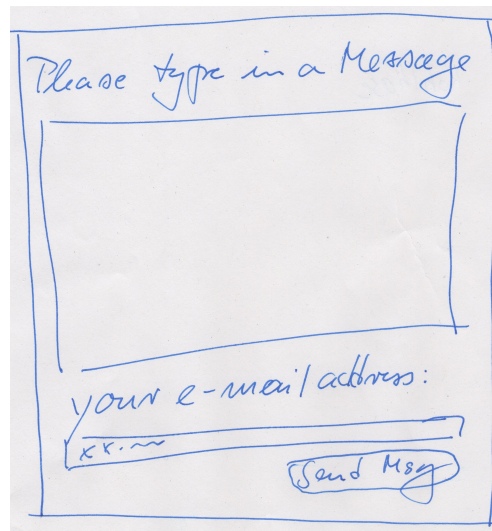 Please type in a Message
your e-mail address:
Send Msg